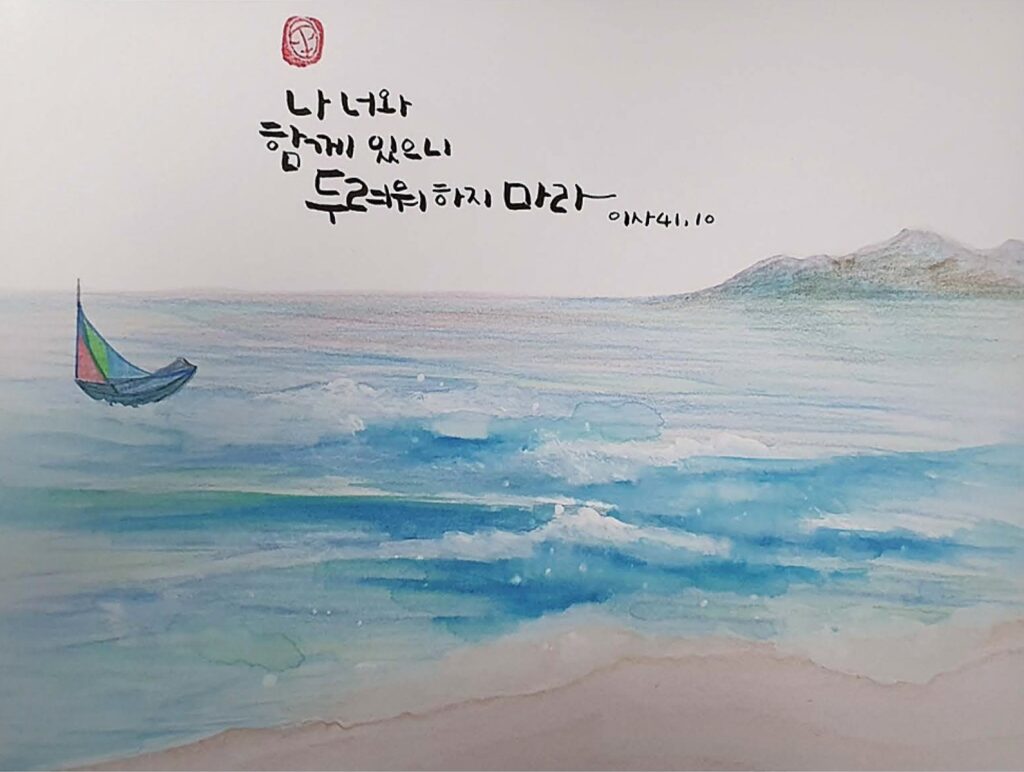 나 너와
함께 있으니
두려워 하지 마라
이사41.10